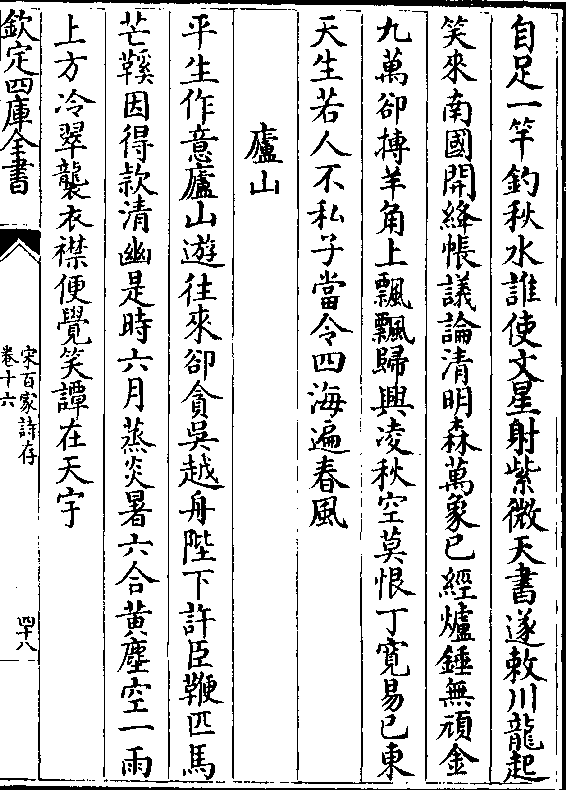 自足一竿釣秋水誰使文星射紫微天書遂敕川龍起
笑來南國開絳帳議論清明森萬象已經爐錘無頑金
九萬卻摶羊角上飄飄歸興凌秋空莫恨丁寛易已東
天生若人不私予當令四海遍春風
廬山
平生作意廬山遊往來卻貪吳越舟陛下許臣鞭匹馬
芒鞵因得款清幽是時六月蒸炎暑六合黄塵空一雨
上方冷翠襲衣襟便覺笑譚在天宇
欽定四庫全書
宋百家詩存
卷十六
四十八